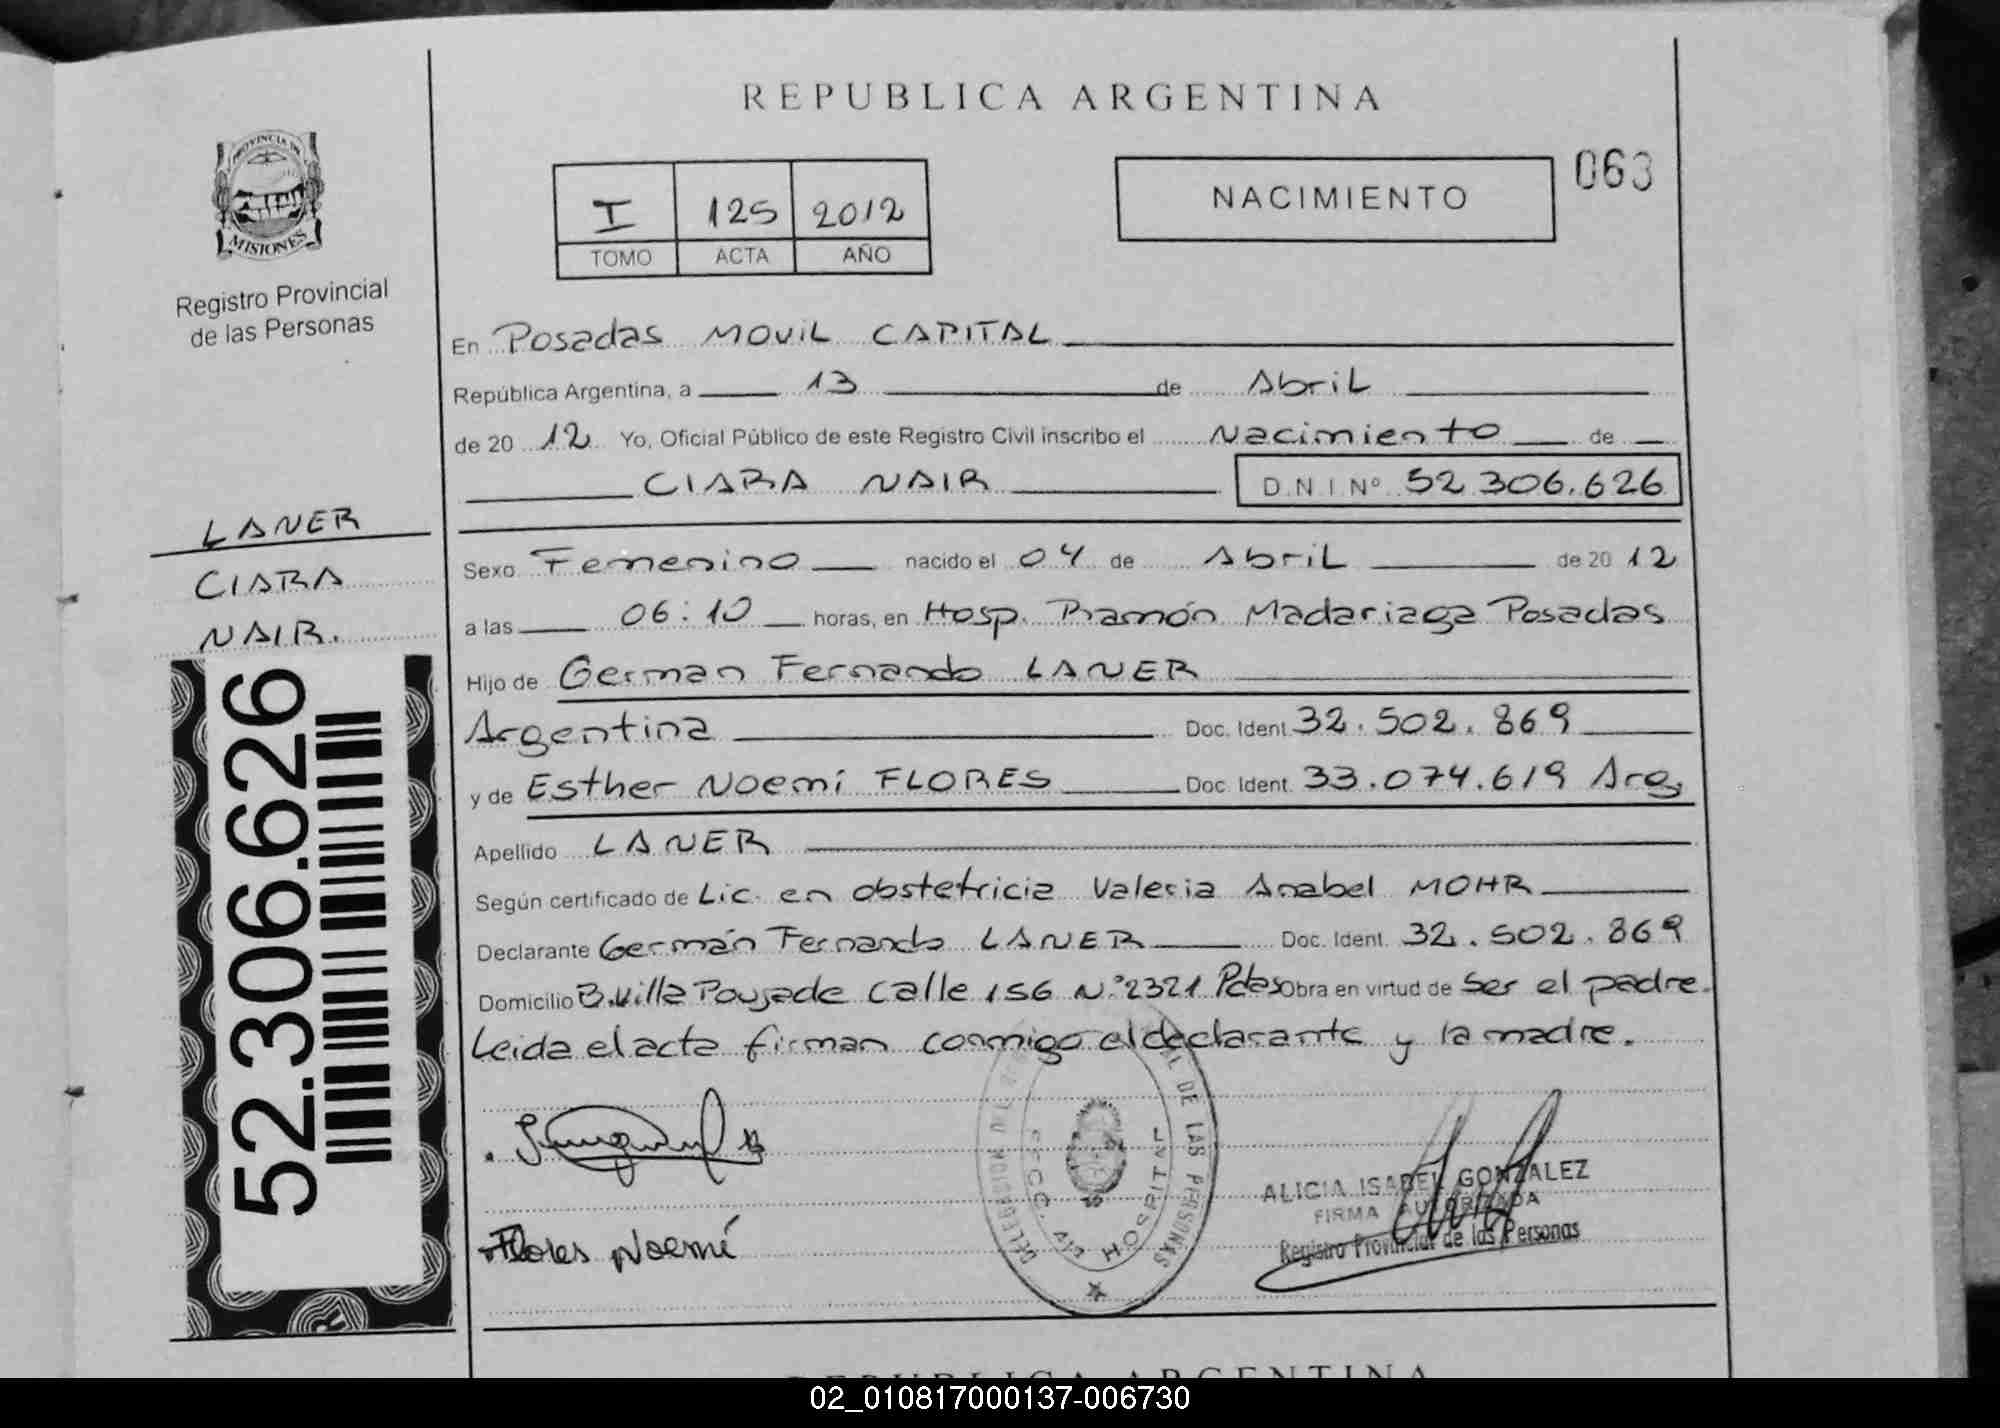 REPUBLICA ARGENTINA
PROVINCIA DE
MISIONES
Registro Provincial
de las Personas
I 125 2012
TOMO ACTA AÑO
NACIMIENTO
063
En Posadas MOVIL CAPITAL
República Argentina, a 13 de Abril
de 20 12 Yo, Oficial Público de este Registro Civil inscribo el Nacimiento de
CIARA NAIR D.N.I.Nº 52.306.626
LANER
CIARA
NAIR.
52.306.626
Sexo Femenino nacido el 04 de Abril de 20 12
a las 06:10 horas, en Hosp. Ramón Madariaga Posadas
Hijo de German Fernando LANER
Argentina Doc. Ident. 32.502.869
y de Esther Noemí FLORES Doc. Ident. 33.074.619 Arg.
Apellido LANER
Según certificado de Lic. en obstetricia Valeria Anabel MOHR
Declarante Germán Fernando LANER Doc. Ident. 32.502.869
Domicilio B. Villa Poujade calle 156 N:º2321 Pdas Obra en virtud de Ser el padre.
Leida el acta firman conmigo el declarante y la madre.
Flores Noemí
DE LAS PERSONAS
HOSPITAL
ALICIA ISABEL GONZALEZ
FIRMA AUTORIZADA
Registro Provincial de las Personas
REPUBLICA ARGENTINA
02_010817000137-006730